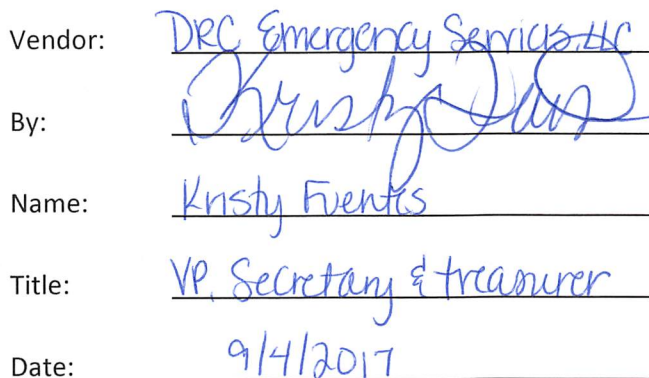 Vendor: DRC Emergency Services, LLC
By: Kristy
Name: Kristy Fuentes
Title: VP, Secretary & treasurer
Date: 9/4/2017